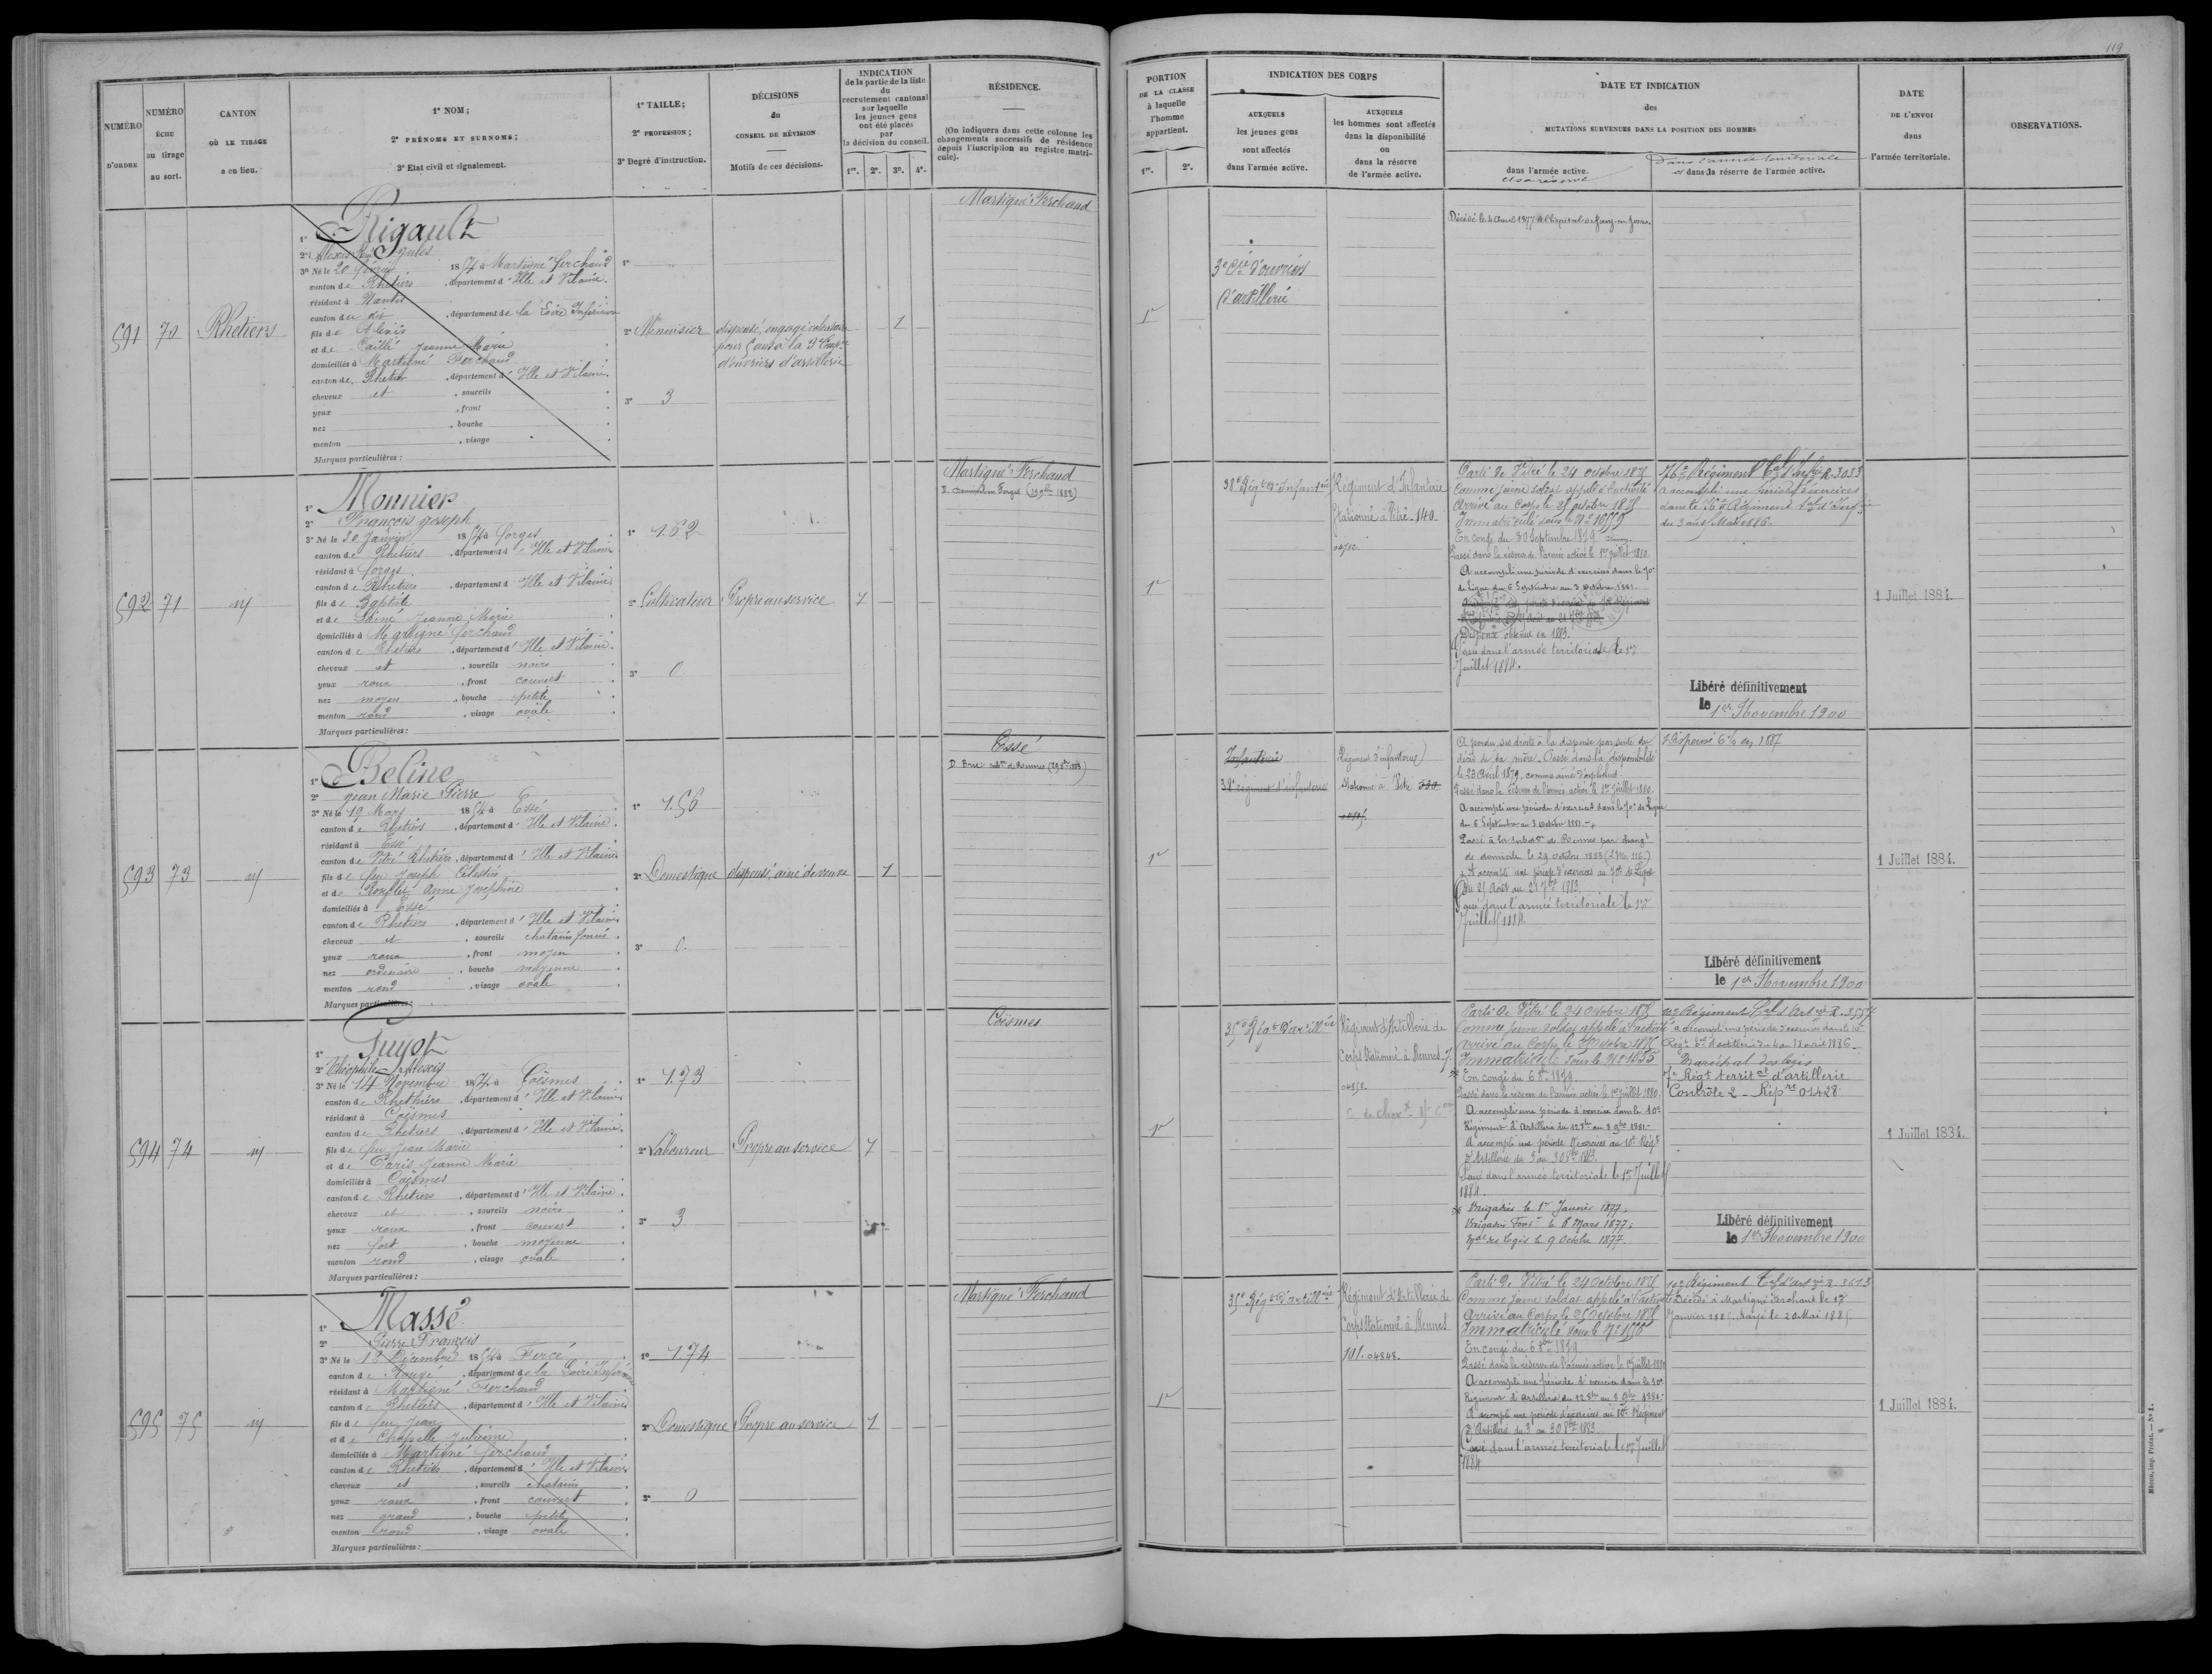 119
NUMÉRO
D'ORDRE
NUMÉRO
ÉCHU
au tirage
au sort.
CANTON
OÙ LE TIRAGE
a eu lieu.
1º NOM;
2º PRÉNOMS ET SURNOMS;
3º Etat civil et signalement.
1º TAILLE;
2º PROFESSION;
3º Degré d'instruction.
DÉCISIONS
du
CONSEIL DE RÉVISION
Motifs de ces décisions.
INDICATION
de la partie de la liste
du
recrutement cantonal
sur laquelle
les jeunes gens
ont été placés
par
la décision du conseil.
1re. 2e. 3e. 4e.
RÉSIDENCE.
(On indiquera dans cette colonne les
changements successifs de résidence
depuis l'inscription au registre matri-
cule).
PORTION
DE LA CLASSE
à laquelle
l'homme
appartient.
1re. 2e.
INDICATION DES CORPS
AUXQUELS
les jeunes gens
sont affectés
dans l'armée active.
AUXQUELS
les hommes sont affectés
dans la disponibilité
ou
dans la réserve
de l'armée active.
DATE ET INDICATION
des
MUTATIONS SURVENUES DANS LA POSITION DES HOMMES
dans l'armée active.
et sa réserve
Dans l'armée territoriale
et dans la réserve de l'armée active.
DATE
DE L'ENVOI
dans
l'armée territoriale.
OBSERVATIONS.
591
70
Rhetiers
1º Rigault
2º Alexis Jules
3º Né le 20 février 1854 à Martigné ferchaud
canton de Rhetiers, département d'Ille et Vilaine.
résidant à Nantes
canton du dit, département de la Loire Inférieure
fils de Alexis
et de Caillé Jeanne Marie
domiciliés à Martigné Ferchaud
canton de Rhetiers, département d'Ille et Vilaine.
cheveux et, sourcils
yeux, front
nez, bouche
menton, visage
Marques particulières :
1º
2º Menuisier
3º 3
dispensé, engagé volontaire
pour 5 ans à la 3e Comp.ie
d'ouvriers d'artillerie
1
Martigné-Ferchaud
1re
3e Cie d'ouvriers
d'artillerie
Décédé le 4 Avril 1877 à l'hôpital
592
71
1º Monnier
2º François Joseph
3º Né le 30 Janvier 1854 à forges
canton de Rhetiers, département d'Ille et Vilaine
résidant à forges
canton de Rhetiers, département d'Ille et Vilaine
fils de Baptiste
et de Jeanne Marie
domiciliés à Martigné ferchaud
canton de Rhetiers, département d'Ille et Vilaine.
cheveux et, sourcils noirs
yeux roux, front couvert
nez moyen, bouche petite
menton rond, visage ovale
Marques particulières :
1º 1.62
2º Cultivateur
3º 0
Propre au service
1
Martigné-Ferchaud
1re
38e Régt d'Infanterie
Régiment d'Infanterie
stationné à Vitré - 140
Parti de Vitré le 24 octobre 1875
comme jeune soldat appelé à l'activité
Arrivé au Corps le 25 octobre 1875
Immatriculé sous le No 1655
En congé du 30 Septembre 1879
Passé dans la réserve de l'armée active le 1er juillet 1880
A accompli une période d'exercices dans le 70e
de Ligne du 6 Septembre au 3 Octobre 1881
Dispense obtenue en 1883.
Passé dans l'armée territoriale le 1er
Juillet 1884.
76e Régiment Tal d'Infie R. 3033
a accompli une période d'exercices
dans le 76e Régiment Tal d'Infie
Libéré définitivement
le 1er Novembre 1900
1 Juillet 1884.
593
73
1º Beline
2º Jean Marie Pierre
3º Né le 19 Mars 1854 à Essé
canton de Rhetiers, département d'Ille et Vilaine.
résidant à Essé
canton de Vitré Rhetiers, département d'Ille et Vilaine
fils de feu Joseph Célestin
et de Anne Joséphine
domiciliés à Essé
canton de Rhetiers, département d'Ille et Vilaine
cheveux et, sourcils chatains foncés
yeux roux, front moyen
nez ordinaire, bouche moyenne
menton rond, visage ovale
Marques particulières :
1º 1.56
2º Domestique
3º 0.
dispensé, ainé de veuve
1
Essé
1re
Infanterie
38e régiment d'infanterie
Régiment d'infanterie
stationné à Vitré
A perdu ses droits à la dispense par suite du
décès de sa mère. Passé dans la disponibilité
le 23 Avril 1879, comme ainé d'orphelins
Passé dans la réserve de l'armée active le 1er juillet 1880
A accompli une période d'exercices dans le 70e de Ligne
du 6 Septembre au 3 Octobre 1881.
Passé à la subdon de Rennes par changt
de domicile le 29 octobre 1883
A accompli une période d'exercices au 70e de Ligne
du 25 Août au 21 7bre 1883.
Passé dans l'armée territoriale le 1er
Juillet 1884
Libéré définitivement
le 1er Novembre 1900
1 Juillet 1884.
594
74
1º Guyot
2º Théophile Alexis
3º Né le 14 Novembre 1854 à Coësmes
canton de Rhethiers, département d'Ille et Vilaine
résidant à Coësmes
canton de Rhetiers, département d'Ille et Vilaine.
fils de feu Jean Marie
et de Paris Jeanne Marie
domiciliés à Coësmes
canton de Rhetiers, département d'Ille et Vilaine.
cheveux et, sourcils noirs
yeux roux, front couvert
nez fort, bouche moyenne
menton rond, visage ovale
Marques particulières :
1º 1.73
2º Laboureur
3º 3
Propre au service
1
Coësmes
1re
35e Régt d'artillerie
Régiment d'Artillerie de
Corps Stationné à Rennes
Parti de Vitré le 24 octobre 1875
Comme jeune soldat appelé à l'activité
arrivé au Corps le 25 octobre 1875
Immatriculé sous le No 1635
En congé du 6 8bre 1879
Passé dans la réserve de l'armée active le 1er juillet 1880.
A accompli une période d'exercices dans le 10e
Régiment d'Artillerie du 12 8bre au 8 9bre 1881
A accompli une période d'exercices au 10e Régt
d'Artillerie du 3 au 30 8bre 1883.
Passé dans l'armée territoriale le 1er Juillet
1884.
Brigadier le 1er Janvier 1877;
Brigadier Fourr le 6 Mars 1877;
Mal des logis le 9 Octobre 1877.
10e Régiment Tal d'Artie R. 3557
Maréchal des logis
7e Régt territal d'artillerie
Contrôle 2 - Répre 01428
Libéré définitivement
le 1er Novembre 1900
1 Juillet 1884.
595
75
1º Massé
2º Pierre François
3º Né le 13 Décembre 1854 à Fercé
canton de Rougé, département de la Loire Inférieure
résidant à Martigné Ferchaud
canton de Rhetiers, département d'Ille et Vilaine
fils de feu Jean
et de Chapelle Julienne
domiciliés à Martigné ferchaud
canton de Rhetiers, département d'Ille et Vilaine
cheveux et, sourcils chatains
yeux roux, front couvert
nez grand, bouche petite
menton rond, visage ovale
Marques particulières :
1º 1.74
2º Domestique
3º 0
Propre au service
1
Martigné-Ferchaud
1re
35e Régt d'artillerie
Régiment d'Artillerie de
Corps Stationné à Rennes
101. 04848.
Parti de Vitré le 24 Octobre 1875
Comme jeune soldat appelé à l'activité
Arrivé au Corps le 25 Octobre 1875
Immatriculé sous le No 1556
En congé du 6 8bre 1879
Passé dans la réserve de l'armée active le 1er juillet 1880
A accompli une période d'exercices dans le 10e
Régiment d'artillerie du 12 8bre au 8 9bre 1881
A accompli une période d'exercices au 10e Régiment
d'Artillerie du 3 au 30 8bre 1883.
Passé dans l'armée territoriale le 1er Juillet
1884
10e Régiment Tal d'Artie R. 3613
Décédé à Martigné Ferchaud le 17
Janvier 1885. Rayé le 20 Mai 1885.
1 Juillet 1884.